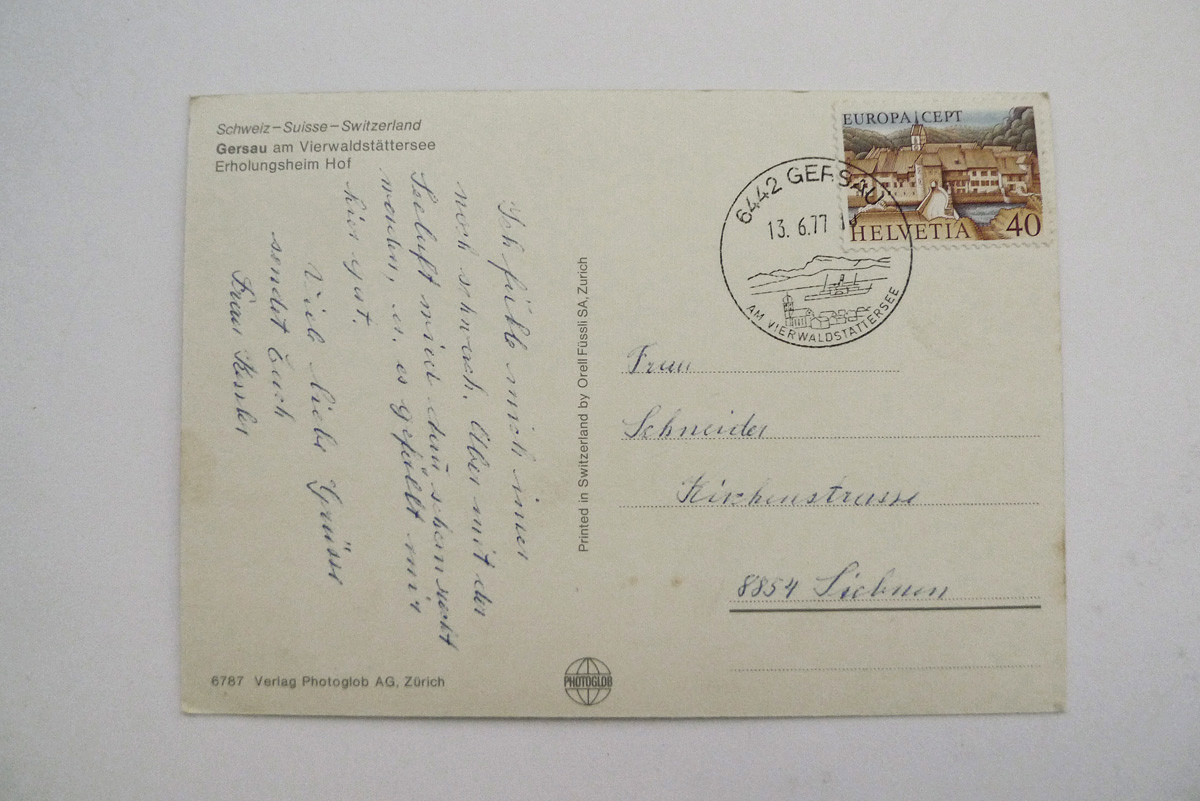 Schweiz–Suisse–Switzerland
Gersau am Vierwaldstättersee
Erholungsheim Hof
Ich fühle mich imer
noch schwach. Aber mit der
Seeluft wird das schon recht
werden, u. es gefällt mir
hier gut.
Viele liebe Grüsse
sendet Euch
Frau
6787 Verlag Photoglob AG, Zürich
Printed in Switzerland by Orell Füssli SA, Zurich
PHOTOGLOB
EUROPA CEPT
HELVETIA 40
6442 GERSAU
13. 6.77
AM VIERWALDSTÄTTERSEE
Frau
Schneider
Kirchenstrasse
8854 Siebnen